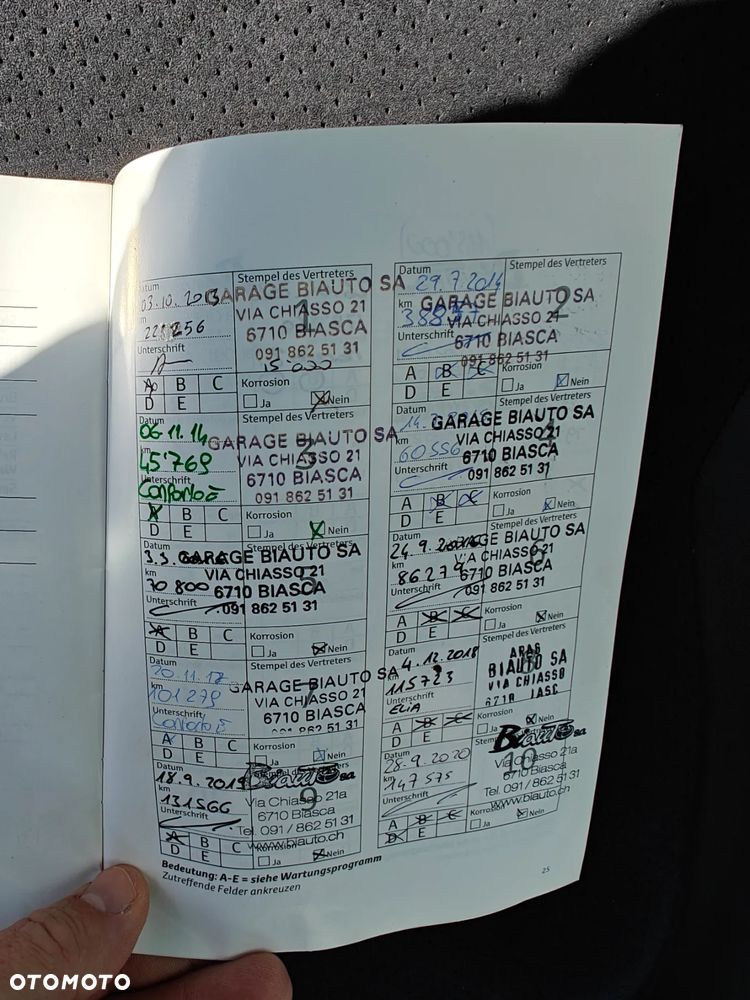 Datum
Stempel des Vertreters
03.10.2013
GARAGE BIAUTO SA
km
VIA CHIASSO 21
6710 BIASCA
Unterschrift
091 862 51 31
15'000
1
A B C
D E
Korrosion
Ja Nein
Datum
Stempel des Vertreters
29.7.2014
GARAGE BIAUTO SA
km
VIA CHIASSO 21
6710 BIASCA
Unterschrift
091 862 51 31
2
A B C
D E
Korrosion
Ja Nein
Stempel des Vertreters
06.11.14
GARAGE BIAUTO SA
km
45'769
VIA CHIASSO 21
6710 BIASCA
091 862 51 31
3
A B C
D E
Korrosion
Ja Nein
Datum
GARAGE BIAUTO SA
km
60556
VIA CHIASSO 21
6710 BIASCA
Unterschrift
091 862 51 31
4
A B C
D E
Korrosion
Ja Nein
Datum
Stempel des Vertreters
GARAGE BIAUTO SA
km
70800
VIA CHIASSO 21
6710 BIASCA
Unterschrift
091 862 51 31
5
A B C
D E
Korrosion
Ja Nein
Datum
Stempel des Vertreters
24.9.2016
GARAGE BIAUTO SA
km
86279
VIA CHIASSO 21
6710 BIASCA
Unterschrift
091 862 51 31
6
A B C
D E
Korrosion
Ja Nein
Datum
Stempel des Vertreters
20.11.17
GARAGE BIAUTO SA
km
101279
VIA CHIASSO 21
6710 BIASCA
Unterschrift
091 862 51 31
7
A B C
D E
Korrosion
Ja Nein
Datum
Stempel des Vertreters
4.12.2018
km
115723
BIAUTO SA
VIA CHIASSO
Unterschrift
ELIA
8
A B C
D E
Korrosion
Ja Nein
Datum
Stempel des Vertreters
18.9.2019
Biauto SA
km
131566
Via Chiasso 21a
6710 Biasca
Unterschrift
Tel. 091 / 862 51 31
www.biauto.ch
9
A B C
D E
Korrosion
Ja Nein
Datum
28.9.2020
Biauto SA
km
147575
Via Chiasso 21a
6710 Biasca
Unterschrift
Tel. 091 / 862 51 31
www.biauto.ch
10
A B C
D E
Korrosion
Ja Nein
Bedeutung: A-E = siehe Wartungsprogramm
Zutreffende Felder ankreuzen
25
OTOMOTO